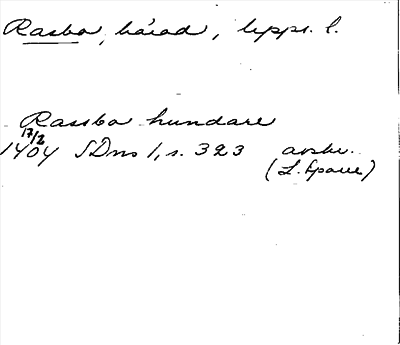 Rasbo, härad, Upps. l.
Rassbo hundare
17/2
1404 SDns 1, s. 323 avskr.